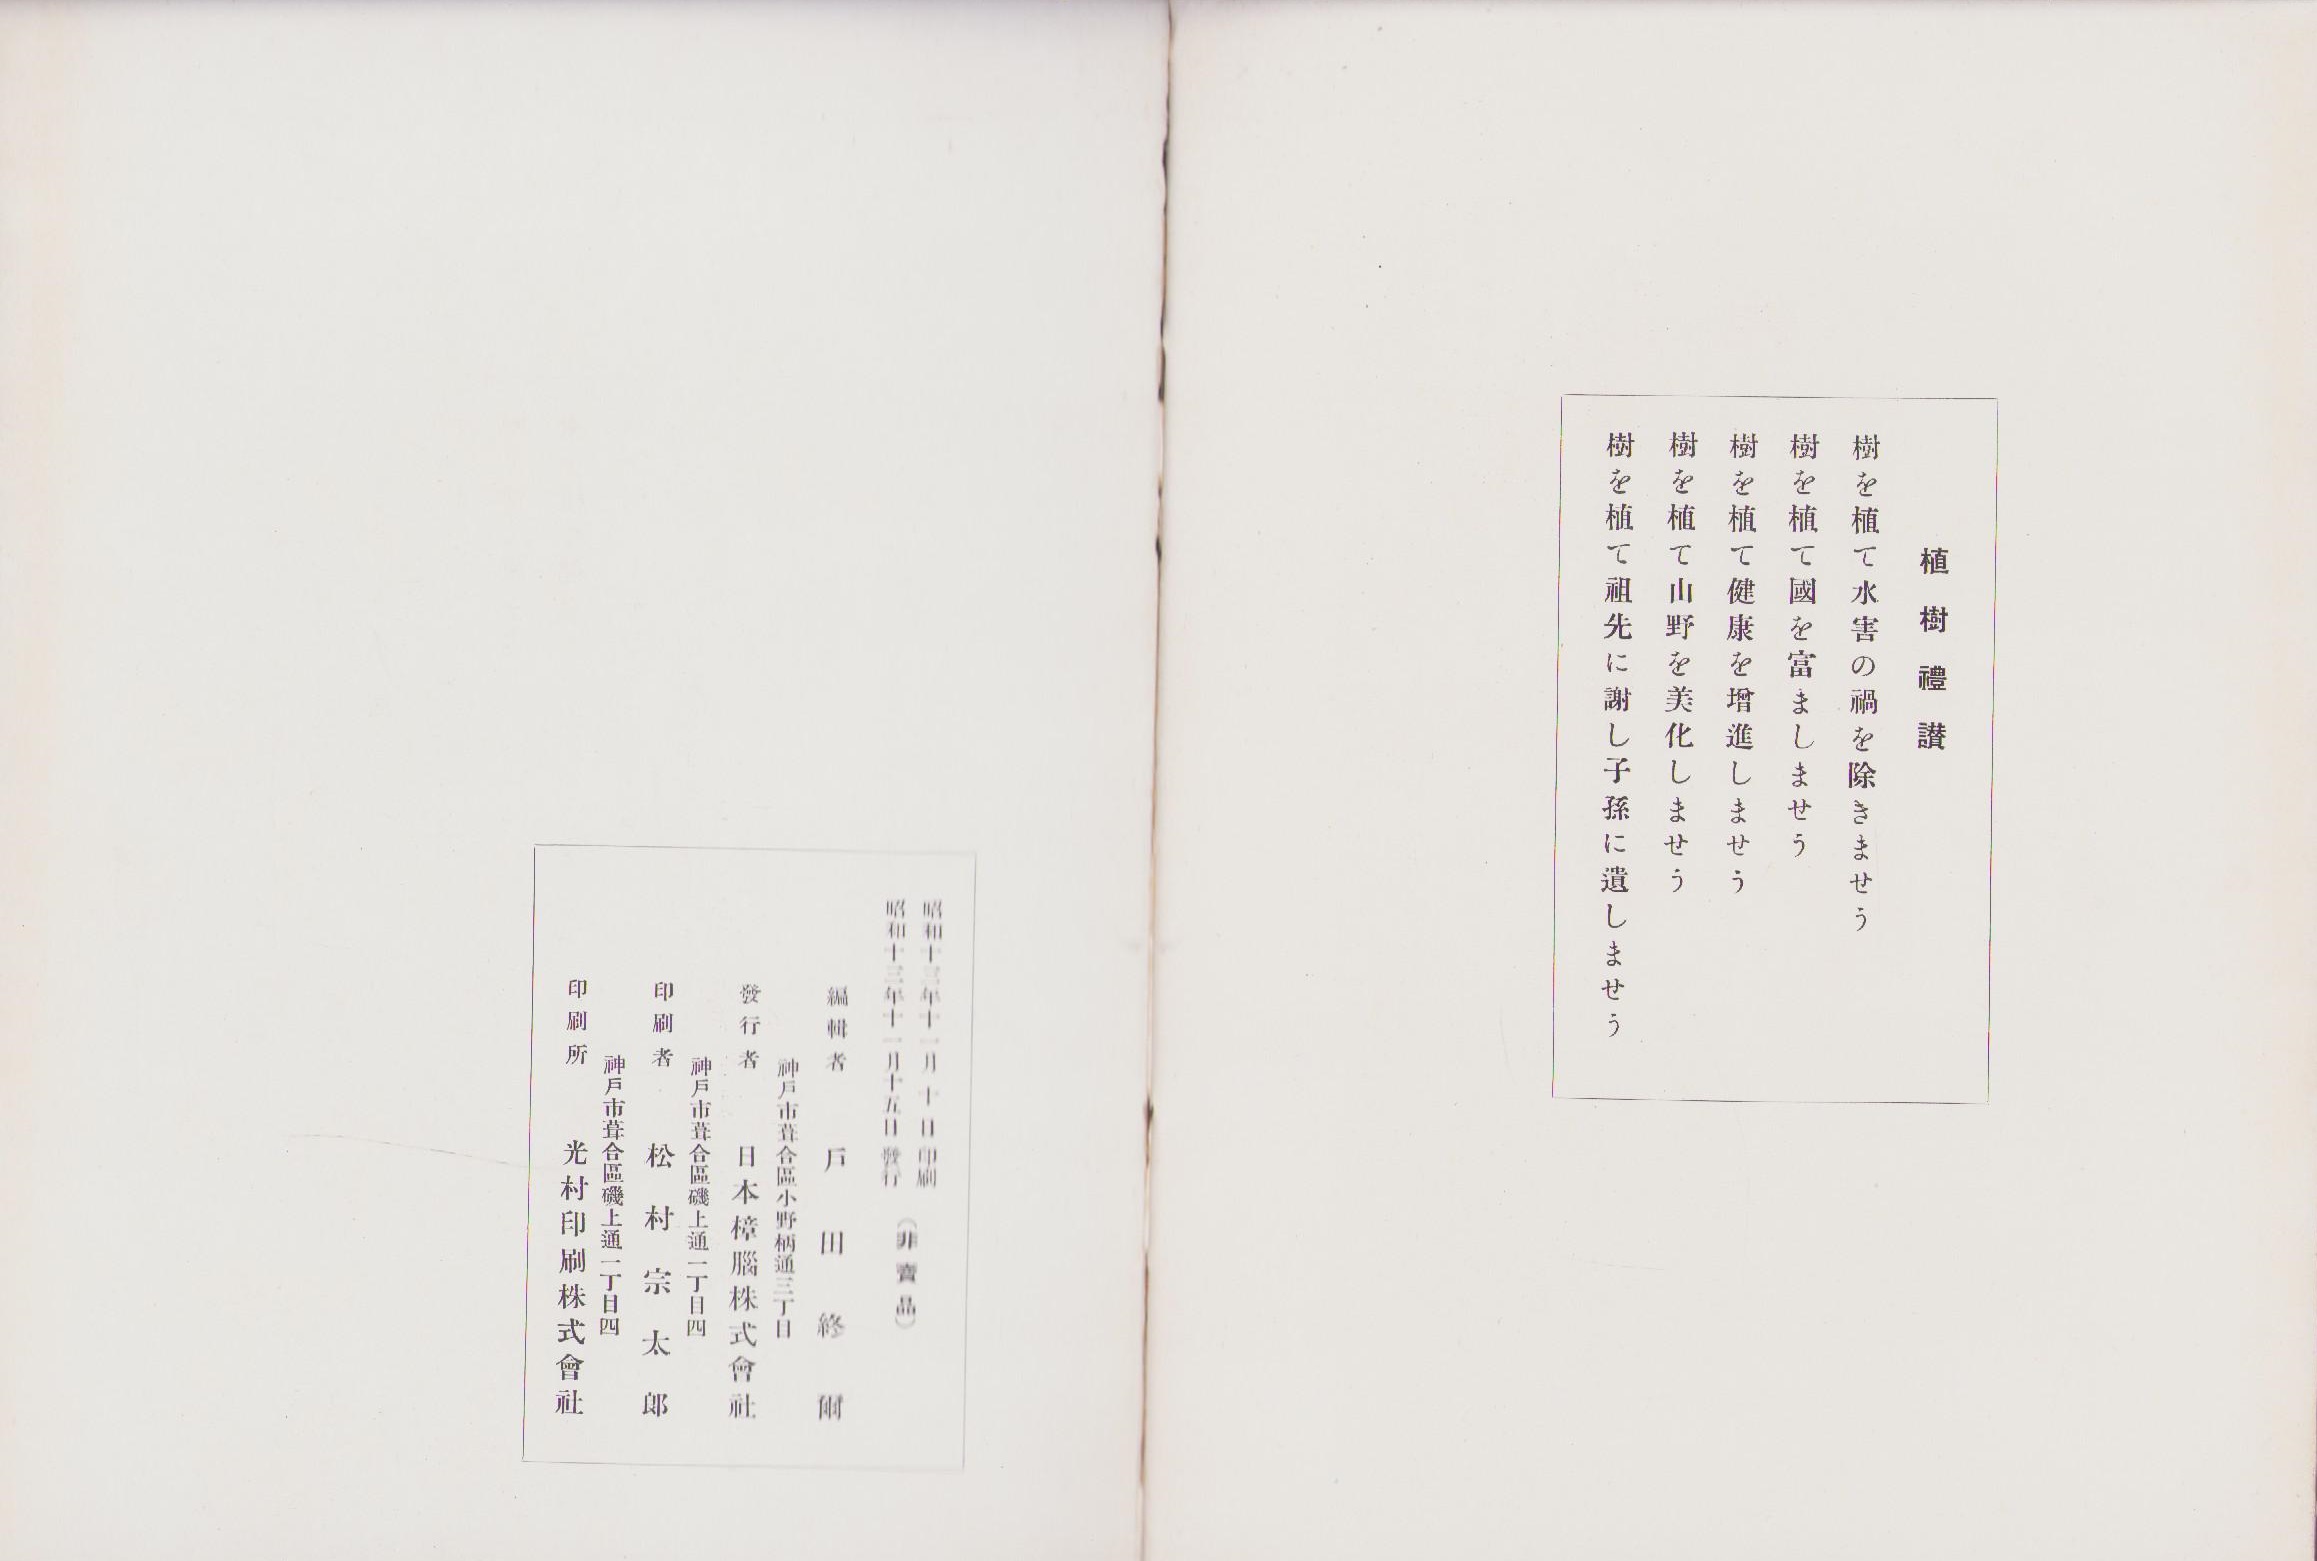 植樹禮讃
樹を植て水害の禍を除きませう
樹を植て國を富ましませう
樹を植て健康を增進しませう
樹を植て山野を美化しませう
樹を植て祖先に謝し子孫に遺しませう
昭和十三年十一月十日印刷
昭和十三年十一月十五日發行
（非賣品）
編輯者 戶田終爾
神戶市葺合區小野柄通三丁目
發行者 日本樟腦株式會社
神戶市葺合區磯上通一丁目四
印刷者 松村宗太郎
神戶市葺合區磯上通一丁目四
印刷所 光村印刷株式會社